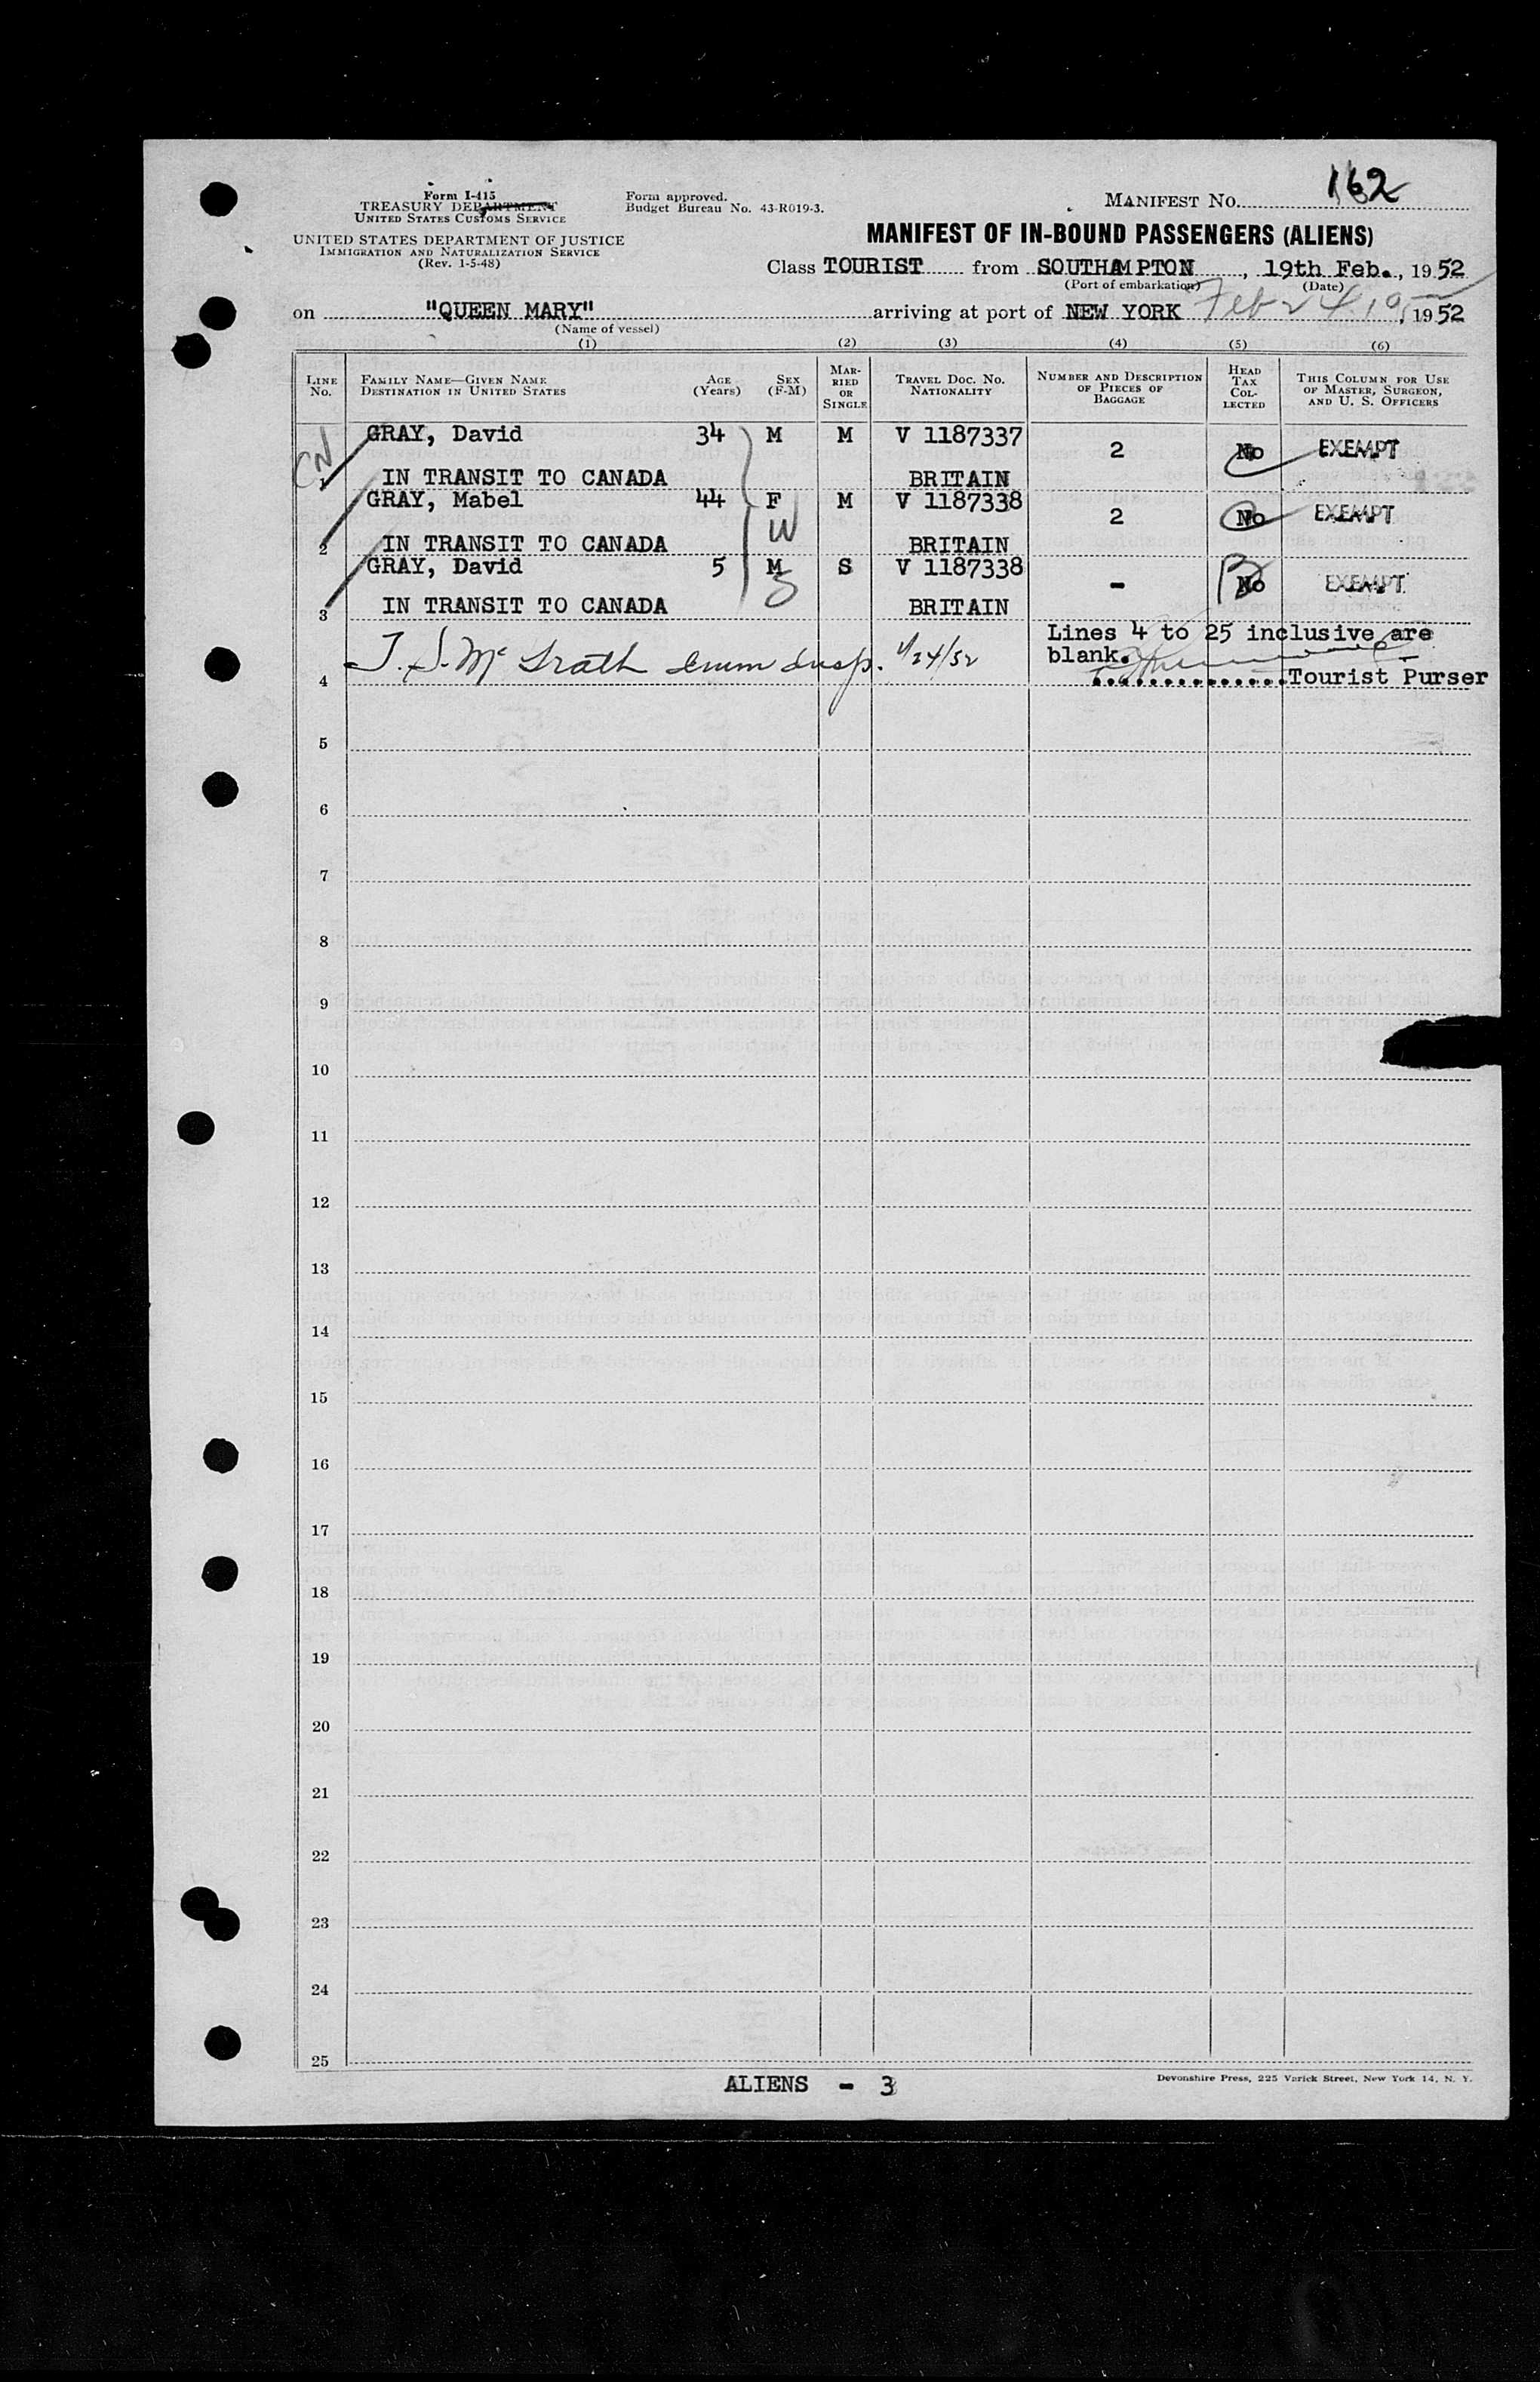 162
Form I-415
TREASURY DEPARTMENT
UNITED STATES CUSTOMS SERVICE
Form approved.
Budget Bureau No. 43-R019-3.
MANIFEST NO.
UNITED STATES DEPARTMENT OF JUSTICE
IMMIGRATION AND NATURALIZATION SERVICE
(Rev. 1-5-48)
MANIFEST OF IN-BOUND PASSENGERS (ALIENS)
Class TOURIST from SOUTHAMPTON, 19th Feb., 1952
(Port of embarkation) (Date)
on "QUEEN MARY" arriving at port of NEW YORK Feb 24 1952, 1952
(Name of vessel)
(1) (2) (3) (4) (5) (6)
LINE No. FAMILY NAME—GIVEN NAME DESTINATION IN UNITED STATES AGE (Years) SEX (F-M) MARRIED OR SINGLE TRAVEL DOC. NO. NATIONALITY NUMBER AND DESCRIPTION OF PIECES OF BAGGAGE HEAD TAX COLLECTED THIS COLUMN FOR USE OF MASTER, SURGEON, AND U. S. OFFICERS
CN
GRAY, David 34 M M V 1187337 2 No EXEMPT
1 IN TRANSIT TO CANADA BRITAIN
GRAY, Mabel 44 F M V 1187338 2 No EXEMPT
W
2 IN TRANSIT TO CANADA BRITAIN
GRAY, David 5 M S V 1187338 - No EXEMPT
S
3 IN TRANSIT TO CANADA BRITAIN
Lines 4 to 25 inclusive are
blank.
Imm Insp.
4 Tourist Purser
5
6
7
8
9
10
11
12
13
14
15
16
17
18
19
20
21
22
23
24
25
ALIENS - 3
Devonshire Press, 225 Varick Street, New York 14, N. Y.